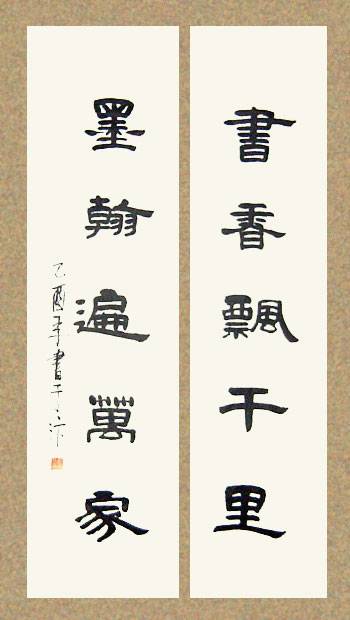 書香飄千里
墨翰遍萬家
乙酉年書于